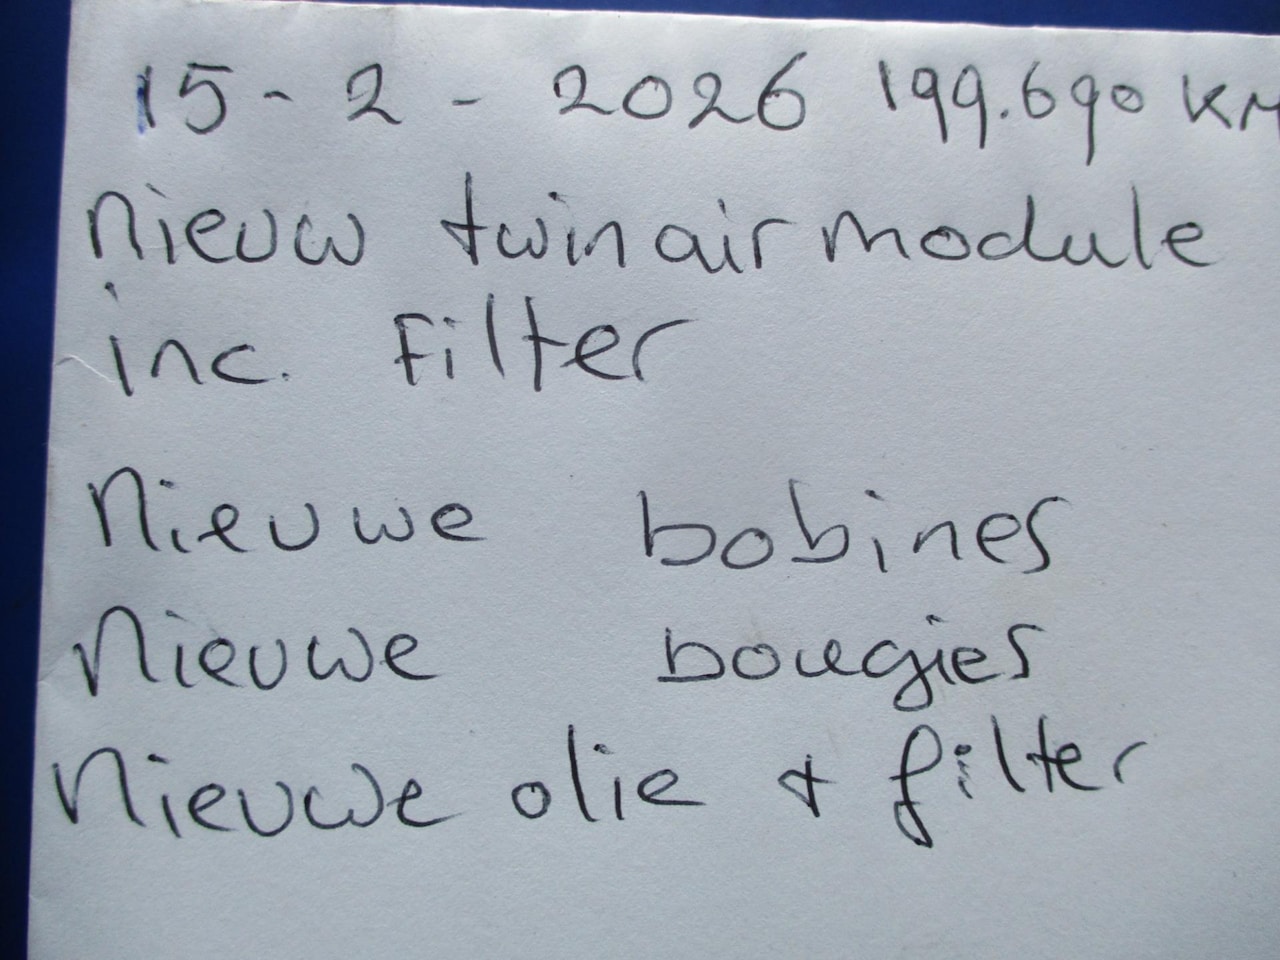 15 - 2 - 2026 199.690 KM
nieuw twinair module
inc. Filter
Nieuwe bobines
Nieuwe bougies
Nieuwe olie + filter